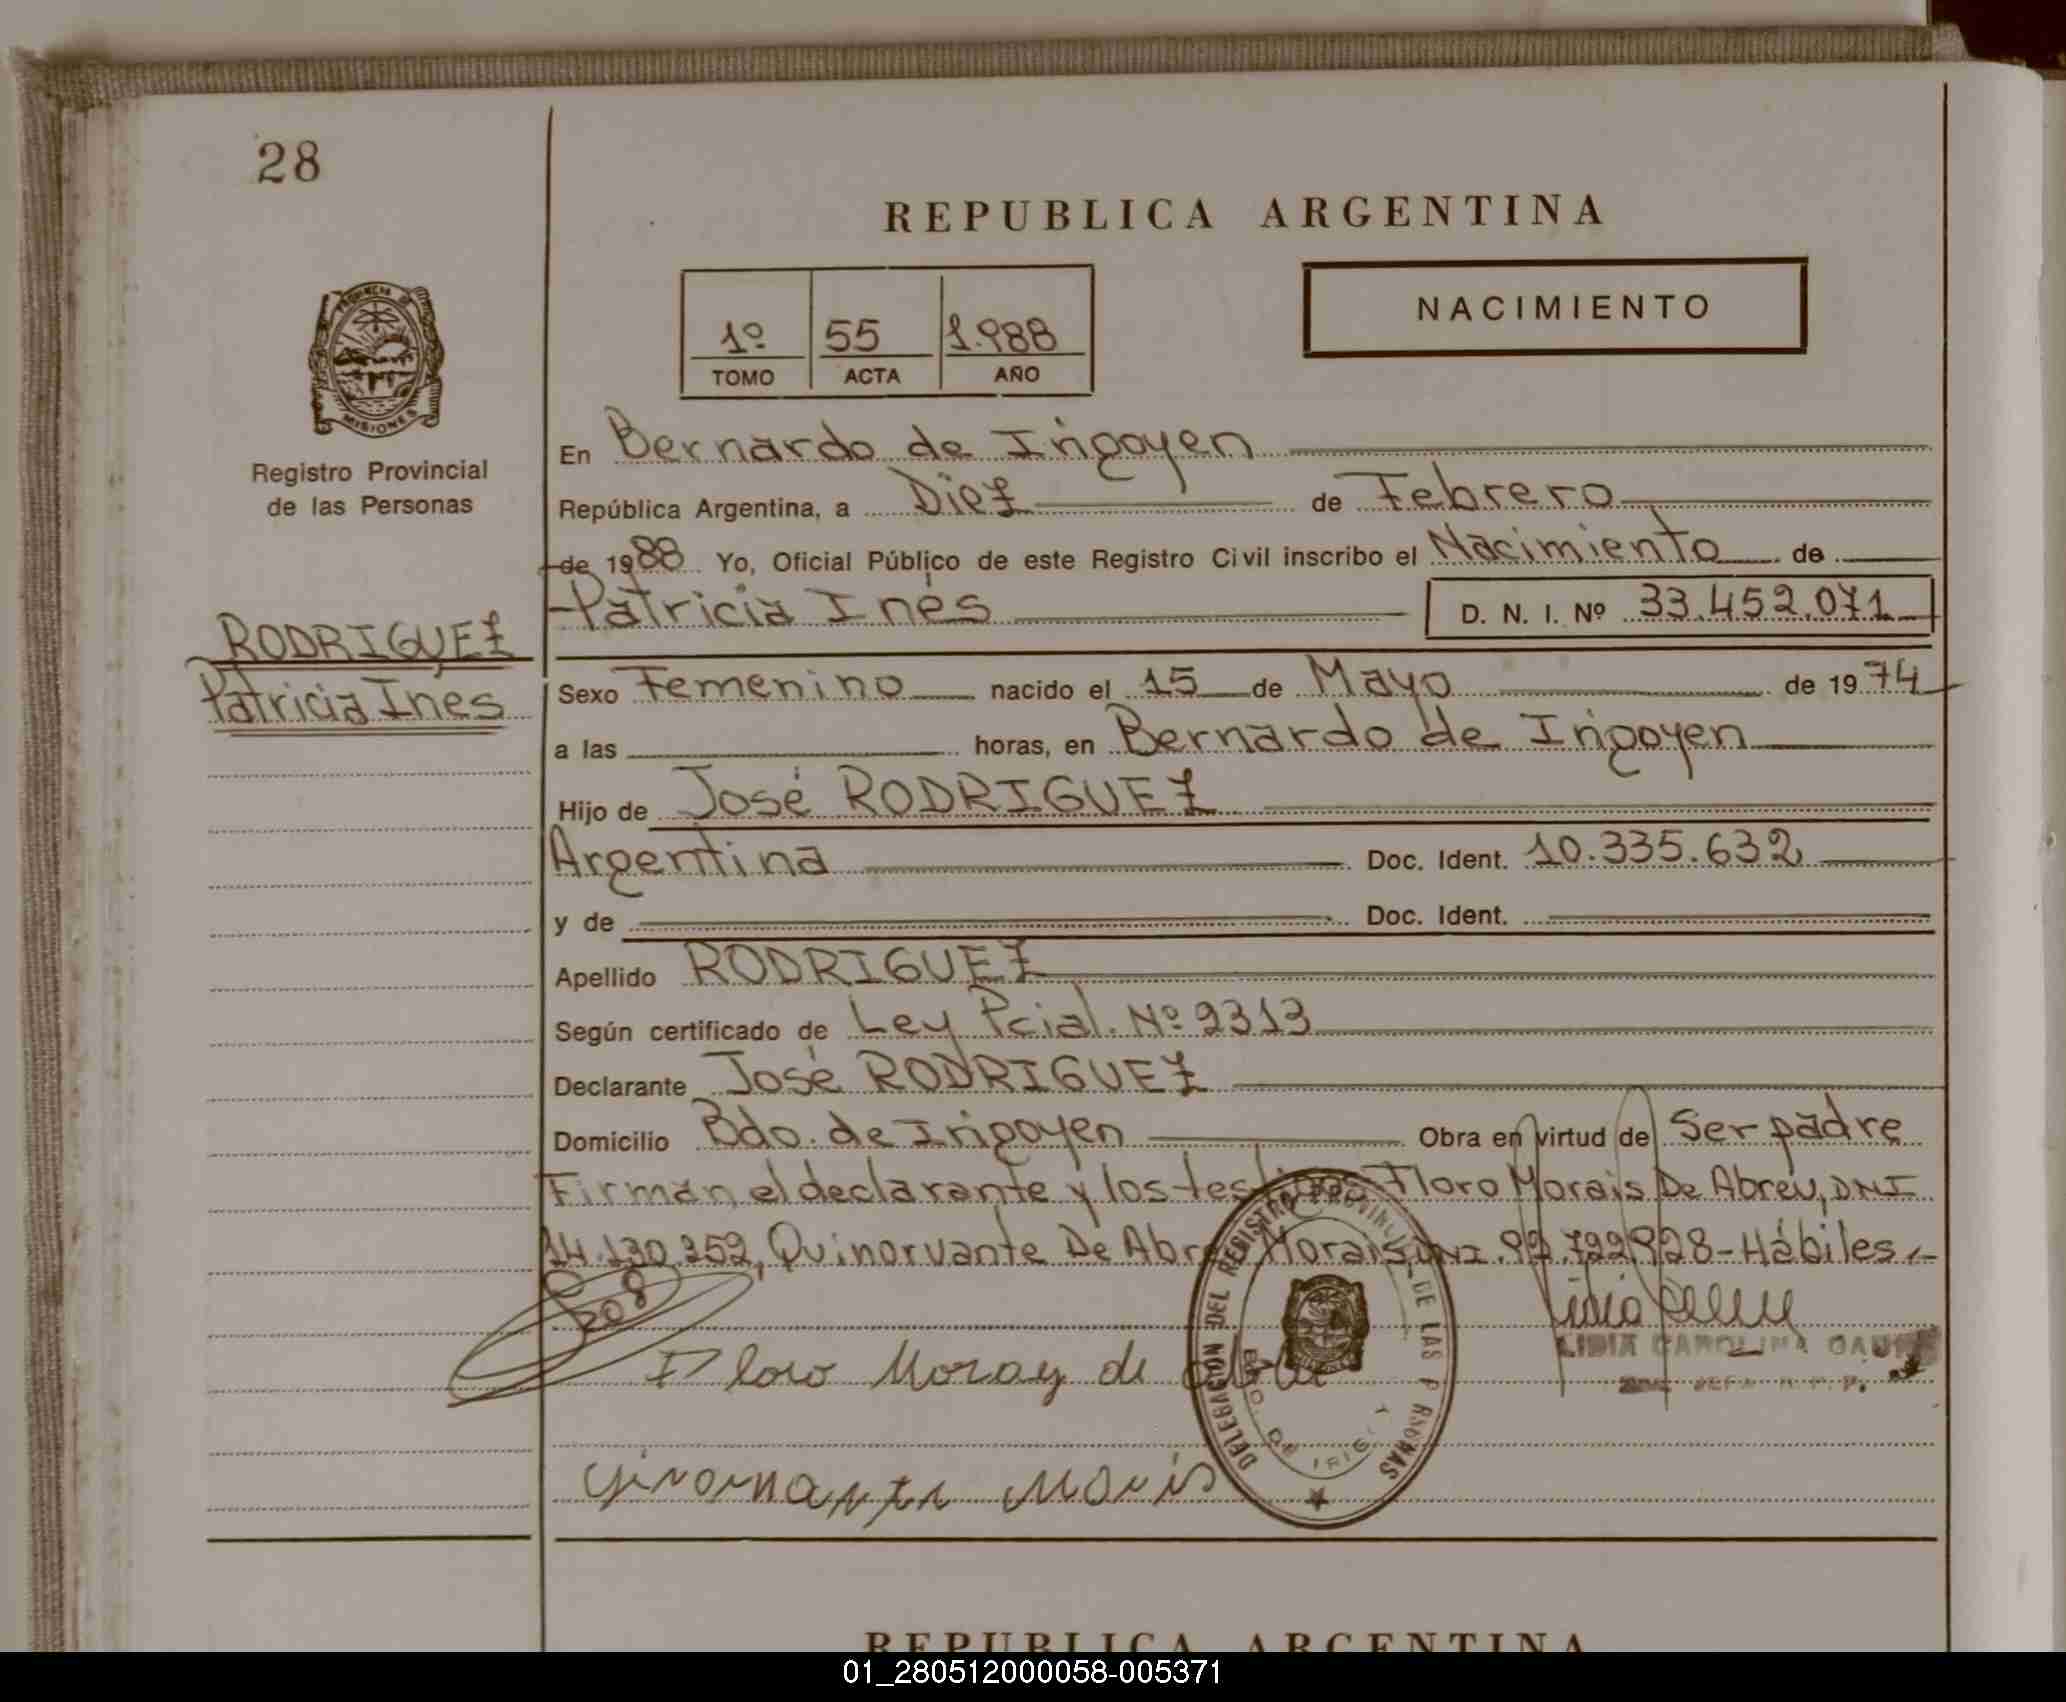 28
REPUBLICA ARGENTINA
NACIMIENTO
1º 55 1.988
TOMO ACTA AÑO
PROVINCIA DE
MISIONES
Registro Provincial
de las Personas
En Bernardo de Irigoyen
República Argentina, a Diez de Febrero
de 1988 Yo, Oficial Público de este Registro Civil inscribo el Nacimiento de
Patricia Inés D. N. I. Nº 33.452.071
RODRIGUEZ
Patricia Ines
Sexo Femenino nacido el 15 de Mayo de 1974
a las horas, en Bernardo de Irigoyen
Hijo de José RODRIGUEZ
Argentina Doc. Ident. 10.335.632
y de Doc. Ident.
Apellido RODRIGUEZ
Según certificado de Ley Pcial. Nº 2313
Declarante José RODRIGUEZ
Domicilio Bdo. de Irigoyen Obra en virtud de Ser padre
Firman, el declarante y los testigos Floro Morais De Abreu, DNI
14.130.252, Quinorvante De Abreu Morais DNI. 92.722.928-Hábiles.-
Floro Moray de
DELEGACION DEL REGISTRO PROVINCIAL DE LAS PERSONAS
BDO. DE IRIGOY
LIDIA CAROLINA
REPUBLICA ARGENTINA
01_280512000058-005371